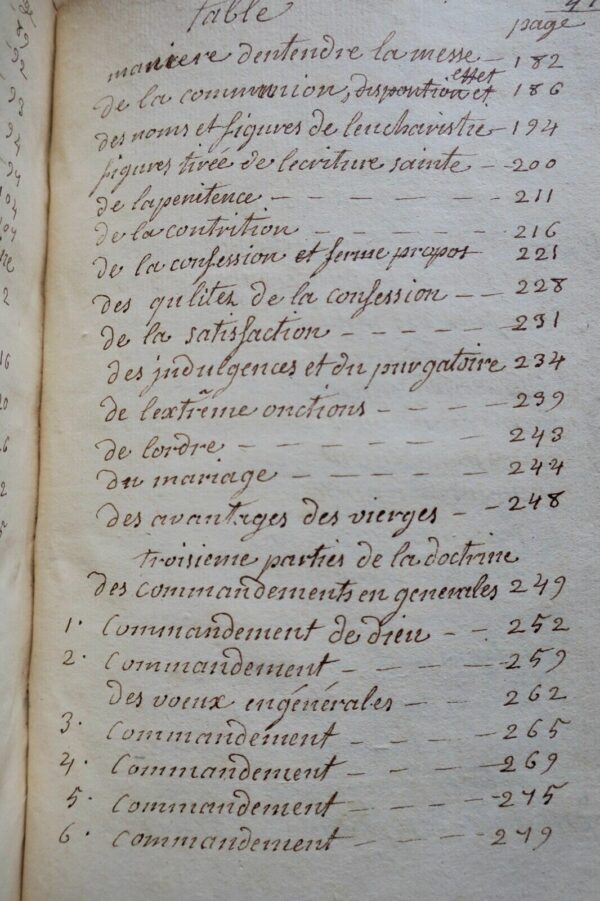 table
page
maniere dentendre la messe — 182
de la communion, disposition et effet — 186
des noms et figures de leucharistie — 194
figures tirée de lecriture sainte — 200
de lapenitence — — — — 211
de la contrition — — — — 216
de la confession et ferme propos — 221
des qulitez de la confession — — 228
de la satisfaction — — — — 231
des jndulgences et du purgatoire 234
de lextrême onctions — — — 239
de lordre — — — — — 243
du mariage — — — — — 244
des avantages des vierges — — 248
troisieme parties de la doctrine
des commandements en generales 249
1. commandement de dieu — — 252
2. commandement — — — — 259
des voeux engénérales — — 262
3. commandement — — — — 265
4. commandement — — — — 269
5. commandement — — — — 275
6. commandement — — — — 279